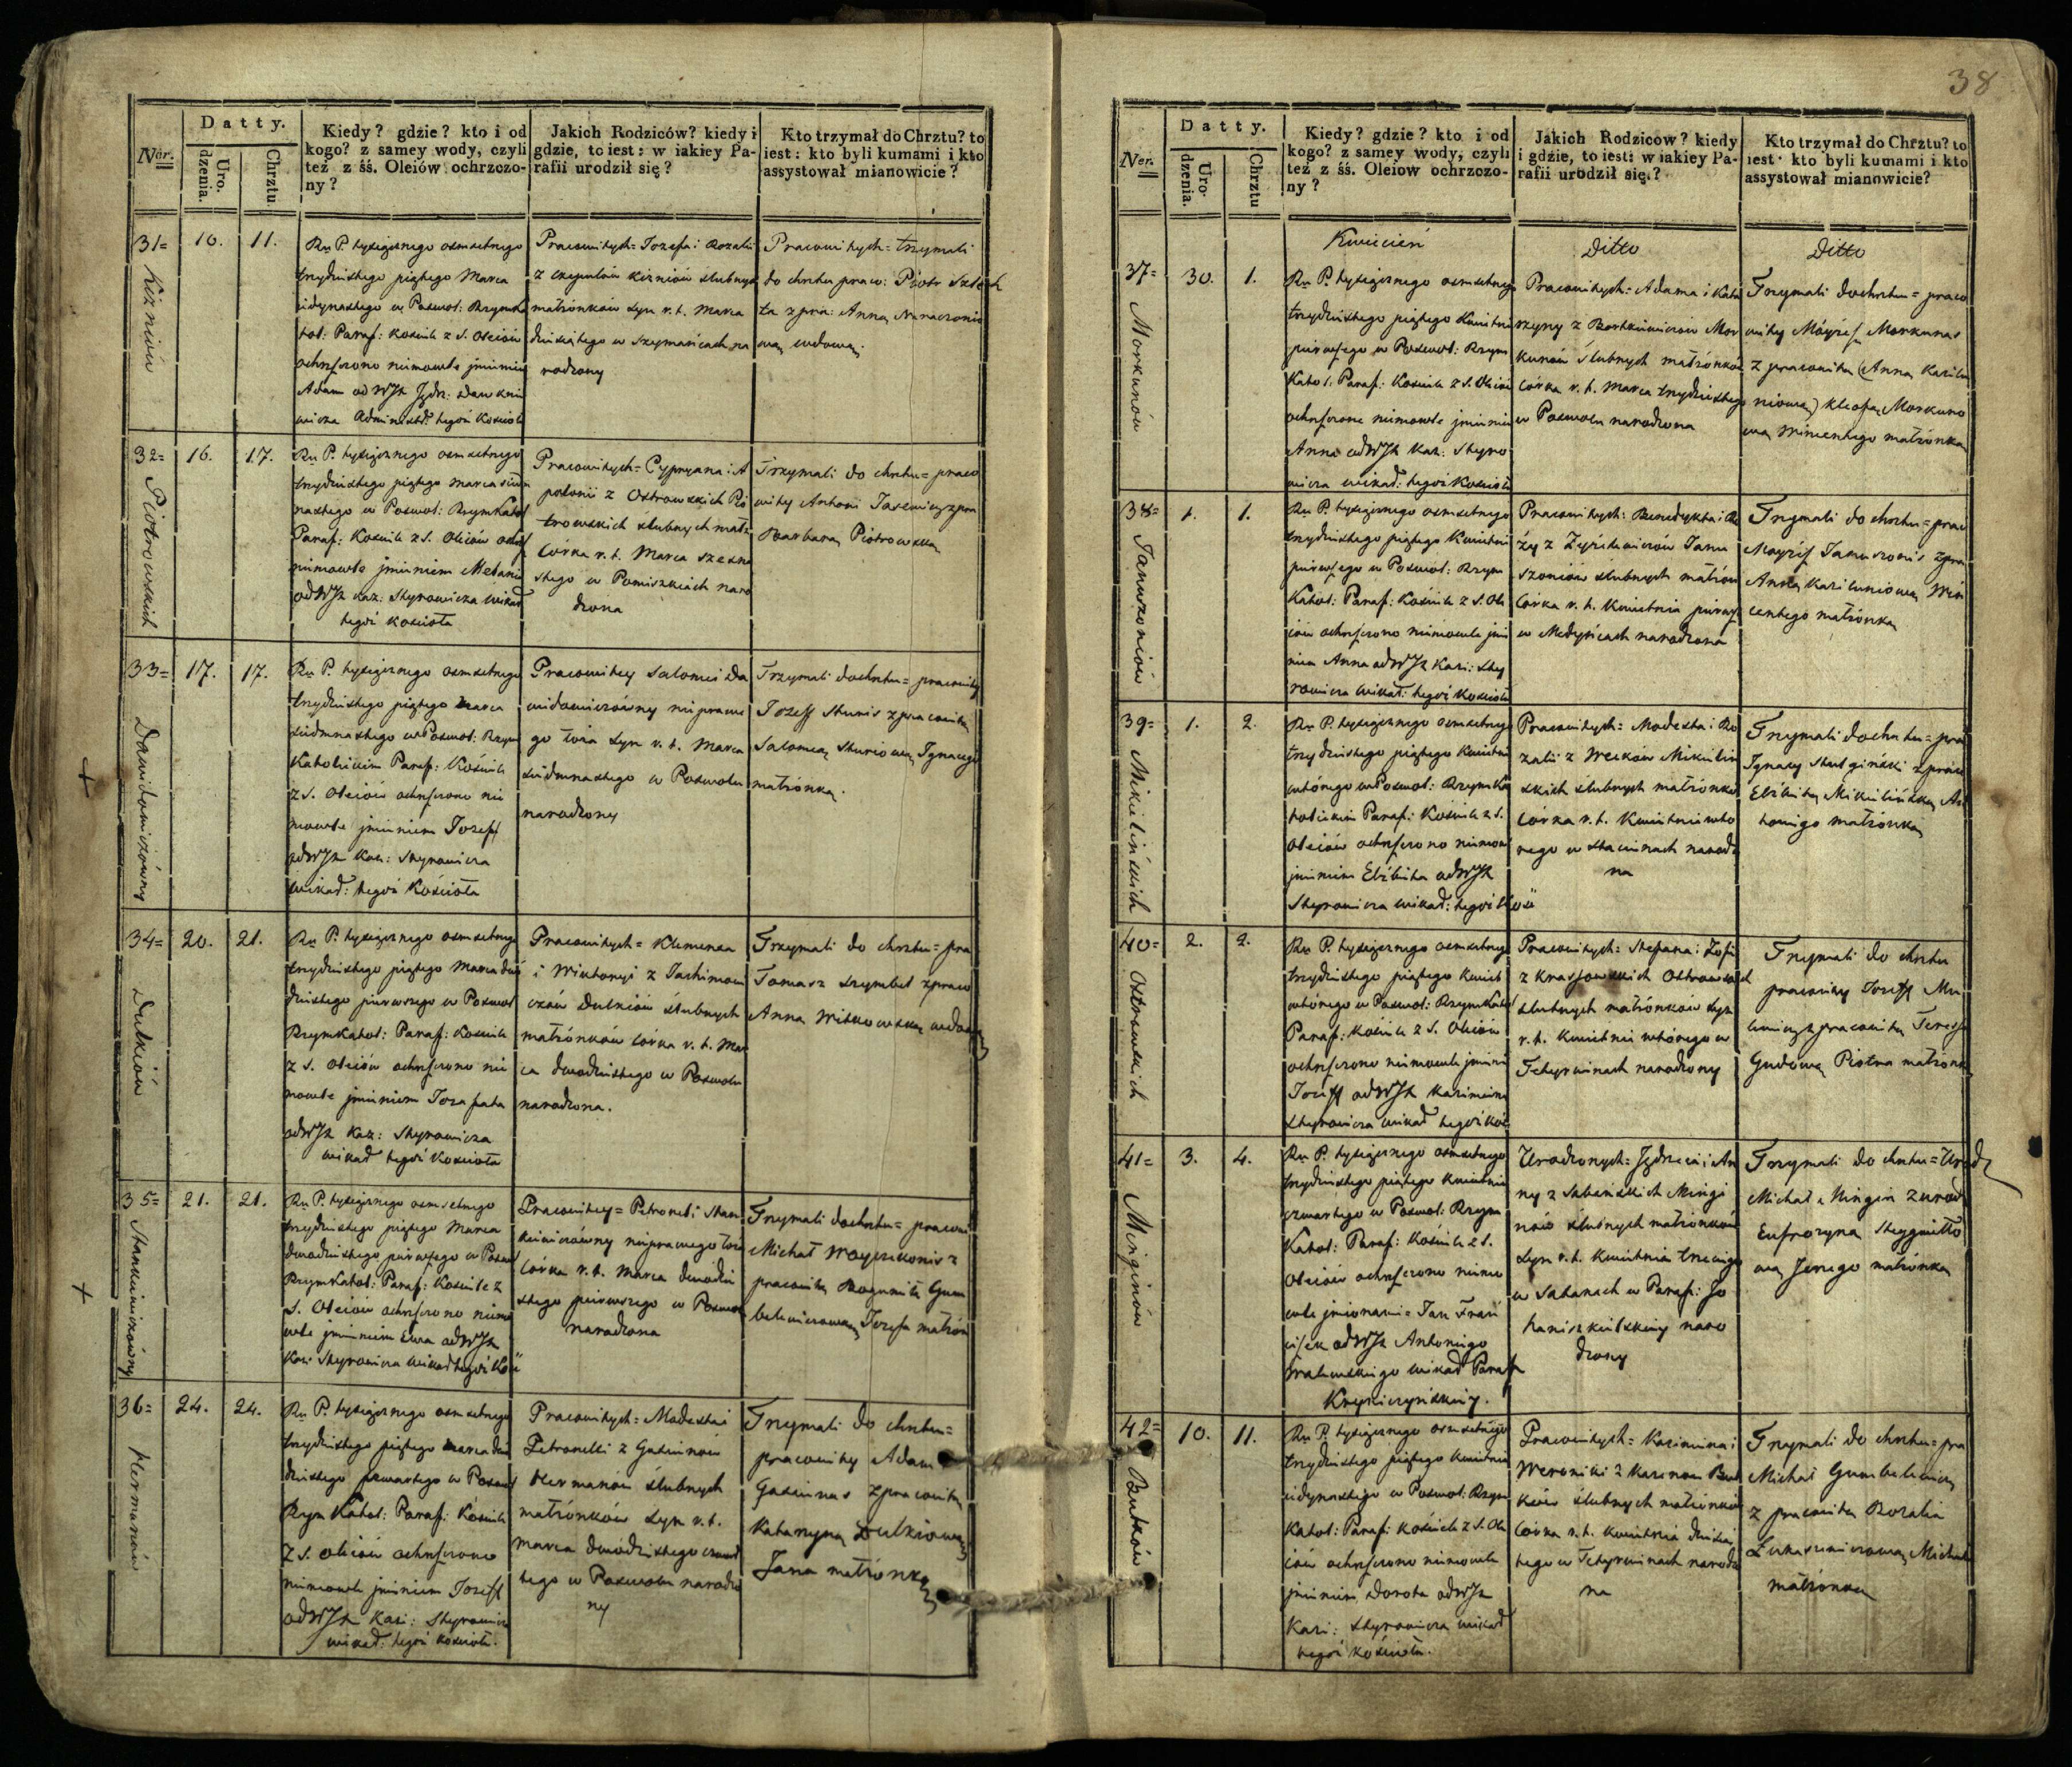 38
Nór.
Datty.
Uro.
dzenia.
Chrztu
Kiedy? gdzie? kto i od
kogo? z samey wody, czyli
też z śś. Oleiów ochrzczo-
ny?
Jakich Rodziców? kiedy i
gdzie, to iest: w iakiey Pa-
rafii urodził się?
Kto trzymał do Chrztu? to
iest: kto byli kumami i kto
assystował mianowicie?
31= 10. 11.
Ru P. tysiącznego osmsetnego
trzydziestego piątego Marca
iedynastego w Poswol: Rzymka
tol: Paraf: Kościele z S. Oleiów
ochrzczono niemowle jmieniem
Adam od WJX Jędrz: Dawknie
wicza Administr: tegoż Kościoła
Pracowitych= Jozefa i Rozalii
matżonków syn r. t. Marca
dziesiątego w Szymańcach na
rodzony
Pracowitych= trzymali
do chrztu praco: Piotr
wdową.
32= 16. 17.
Piotrowskich
Ru P. tysiącznego osmsetnego
trzydziestego piątego marca siedm
nastego w Poswol: RzymKatol
Paraf: Kościele z S. Oleiów ochrz
niemowle jmieniem Melania
od WJX Kaz: Styrowicza wikad
tegoż kościoła
Pracowitych= Cypryana i A
polonii z Ostrowskich Pio
trowskich ślubnych małż
Córka r. t. Marca szesna
stego w Pomiszkiach naro
dzona
Trzymali do chrztu= praco
wity Antoni
Barbarą Piotrowską
33= 17. 17.
Dawidowiczówny
Ru P. tysiącznego osmsetnego
trzydziestego piątego Marca
siedmnastego w Poswol: Rzym
Katolickim Paraf: Kościele
z S. Oleiów ochrzczono nie
mowle jmieniem Jozeff
od WJX Kaz: Styrowicza
wikad: tegoż Kościoła
Pracowitey Salomei Da
widowiczówny niprawe
go łoża syn r. t. Marca
siedmnastego w Poswolu
narodzony
Trzymali do chrztu= pracowity
Jozeff Sturis z pracowitą
Salomeą Sturiową Ignacego
matżonką.
34= 20. 21.
Dulkiów
Ru P. tysiącznego osmsetnego
trzydziestego piątego Marca dwó
dziestego pierwszego w Poswol
RzymKatol: Paraf: Kościele
z S. Oleiów ochrzczono nie
mowle jmieniem Jozafata
od WJX Kaz: Styrowicza
wikad tegoż Kościoła
Pracowitych= Klemensa
i Wiktoryi z Jachimow
czów Dulkiów ślubnych
matżonków córka r. t. Mar
ca dwódziestego w Poswolu
narodzona.
Trzymali do chrztu= pra
Tomasz Szymbel z praco
Anna Witkowską wdową
35= 21. 21.
Stankiewiczówny
Ru P. tysiącznego osmsetnego
trzydziestego piątego Marca
dwudziestego pierwszego w Poswol
RzymKatol: Paraf: Kościele z
S. Oleiów ochrzczono niemo
wle jmieniem Ewa od WJX
Kaz: Styrowicza wikad tegoż Koś
Pracowitey= Petroneli Stan
kiewiczówny nieprawego łoża
córka r. t. Marca dwódzie
stego pierwszego w Poswolu
narodzona
Trzymali do chrztu= pracowi
Michał Woyczkonis z
pracowitą Bogumiłą Gum
belewiczową Jozefa matżon
36= 24. 24.
Hermanów
Ru P. tysiącznego osmsetnego
trzydziestego piątego marca dwó
dziestego czwartego w Poswol
Rzym Katol: Paraf: Kościele
z S. Oleiów ochrzczono
niemowle jmieniem Jozeff
od WJX Kazi: Styrowicz
wikad: tegoż kościoła.
Pracowitych= Modesta i
Petronelli z Gasiunów
Hermanów ślubnych
matżonków syn r. t.
marca dwódziestego czwar
tego w Poswolu narodzo
ny
Trzymali do chrztu=
pracowity Adam
Gasiunas z pracowitą
Katarzyną Dulkiową
Jana matżonką
Ner.
Datty.
Uro-
dzenia.
Chrztu
Kiedy? gdzie? kto i od
kogo? z samey wody, czyli
też z śś. Oleiow ochrzczo-
ny?
Jakich Rodziców? kiedy
i gdzie, to iest: w iakiey Pa-
rafii urodził się?
Kto trzymał do Chrztu? to
iest: kto byli kumami i kto
assystował mianowicie?
Kwiecień
Ditto
Ditto
37= 30. 1.
Morkunów
Ru P. tysiącznego osmsetnego
trzydziestego piątego Kwietnia
pierwszego w Poswol: Rzym
Katol: Paraf: Kościele z S. Oleiów
ochrzczono niemowle jmieniem
Anna od WJX Kaz: Styro
wicza wikad: tegoż Kościoła
Pracowitych= Adama i Kata
rzyny z Bortkiewiczów Mor
kunów ślubnych matżonków
córka r. t. Marca trzydziestego
w Poswolu narodzona
Trzymali do chrztu= praco
wity Moyżesz Morkunas
z pracowitą (Anną Kazilu
niową) Kleofą Morkuno
wą Wincentego matżonką
38= 1. 1.
Januszoniów
Ru P. tysiącznego osmsetnego
trzydziestego piątego Kwietni
pierwszego w Poswol: Rzym
Katol: Paraf: Kościele z S. Ole
iów ochrzczono niemowle jmie
niem Anna od WJX Kazi: Sty
rowicza wikad: tegoż Kościoła
Pracowitych: Benedykta i
szoniów ślubnych matżon
Córka r. t. Kwietnia pierwsz
narodzona
Trzymali do chrztu= prac
Moyżesz Januszonis z pra
Anną Kaziluniową Win
centego matżonką
39= 1. 2.
Mikielińskich
Ru P. tysiącznego osmsetnego
trzydziestego piątego Kwietnia
wtórego w Poswol: RzymKa
tolickim Paraf: Kościele z S.
Oleiów ochrzczono niemow
jmieniem Elżbieta od WJX
Styrowicza wikad: tegoż Koś
Pracowitych= Modesta i Ro
zalii z Weików Mikieliń
skich ślubnych matżonków
Córka r. t. Kwietnia wtó
rego w narodzo
na
Trzymali do chrztu= pra
Ignacy z praco
Elżbietą Mikielińską An
toniego Matżonką
40= 2. 2.
Ostrowskich
Ru P. tysiącznego osmsetnego
trzydziestego piątego Kwiet
wtórego w Poswol: RzymKatol
Paraf: Kościele z S. Oleiów
ochrzczono niemowle jmieni
Jozeff od WJX Kazimierza
Styrowicza wikad tegoż Koś
Pracowitych= Stefana i Zofii
z Krassowskich Ostrowskich
ślubnych matżonków syn
r. t. Kwietnia wtórego w
Tetyrwinach narodzony
Trzymali do chrztu
pracowity Jozeff
z pracowitą Teressą
Gudową Piotra matżonką
41= 3. 4.
Minginów
Ru P. tysiącznego osmsetnego
trzydziestego piątego Kwietnia
czwartego w Poswol: Rzym
Katol: Paraf: Kościele z S.
Oleiów ochrzczono niemo
wle jmionami= Jan Fran
ciszek od WJX Antoniego
wikad Paraf
Kryniczyńskiey.
Urodzonych= Jędrzeia i An
ny z Mingi
nów ślubnych matżonków
syn r. t. Kwietnia trzeciego
w Paraf: Jo
haniszkielskiey naro
dzony
Trzymali do chrztu= Urodz
Michał Mingin z urod
Eufrozyną Steygwiłło
wą Jerzego matżonką
42= 10. 11.
Butków
Ru P. tysiącznego osmsetnego
trzydziestego piątego Kwietnia
iedynastego w Poswol: Rzym
Katol: Paraf: Kościele z S. Ole
iów ochrzczono niemowle
jmieniem Dorota od WJX
Kazi: Styrowicza wikad
tegoż Kościoła.
Pracowitych= Kazimierza i
Weroniki z But
ków ślubnych matżonków
Córka r. t. Kwietnia dziesią
tego w Tetyrwinach narodzo
na
Trzymali do chrztu= pra
Michał Gumbelewicz
z pracowitą Rozalią
Łukaszewiczową Michała
Matżonką